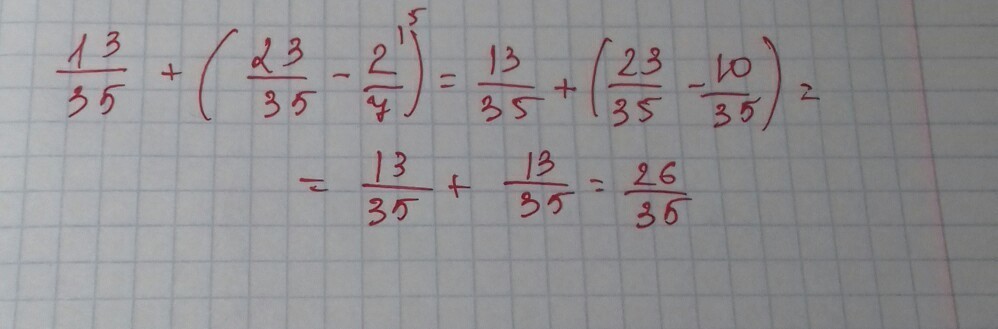 13/35 + (23/35 - 2/7 ⁾⁵) = 13/35 + (23/35 - 10/35) =
= 13/35 + 13/35 = 26/35